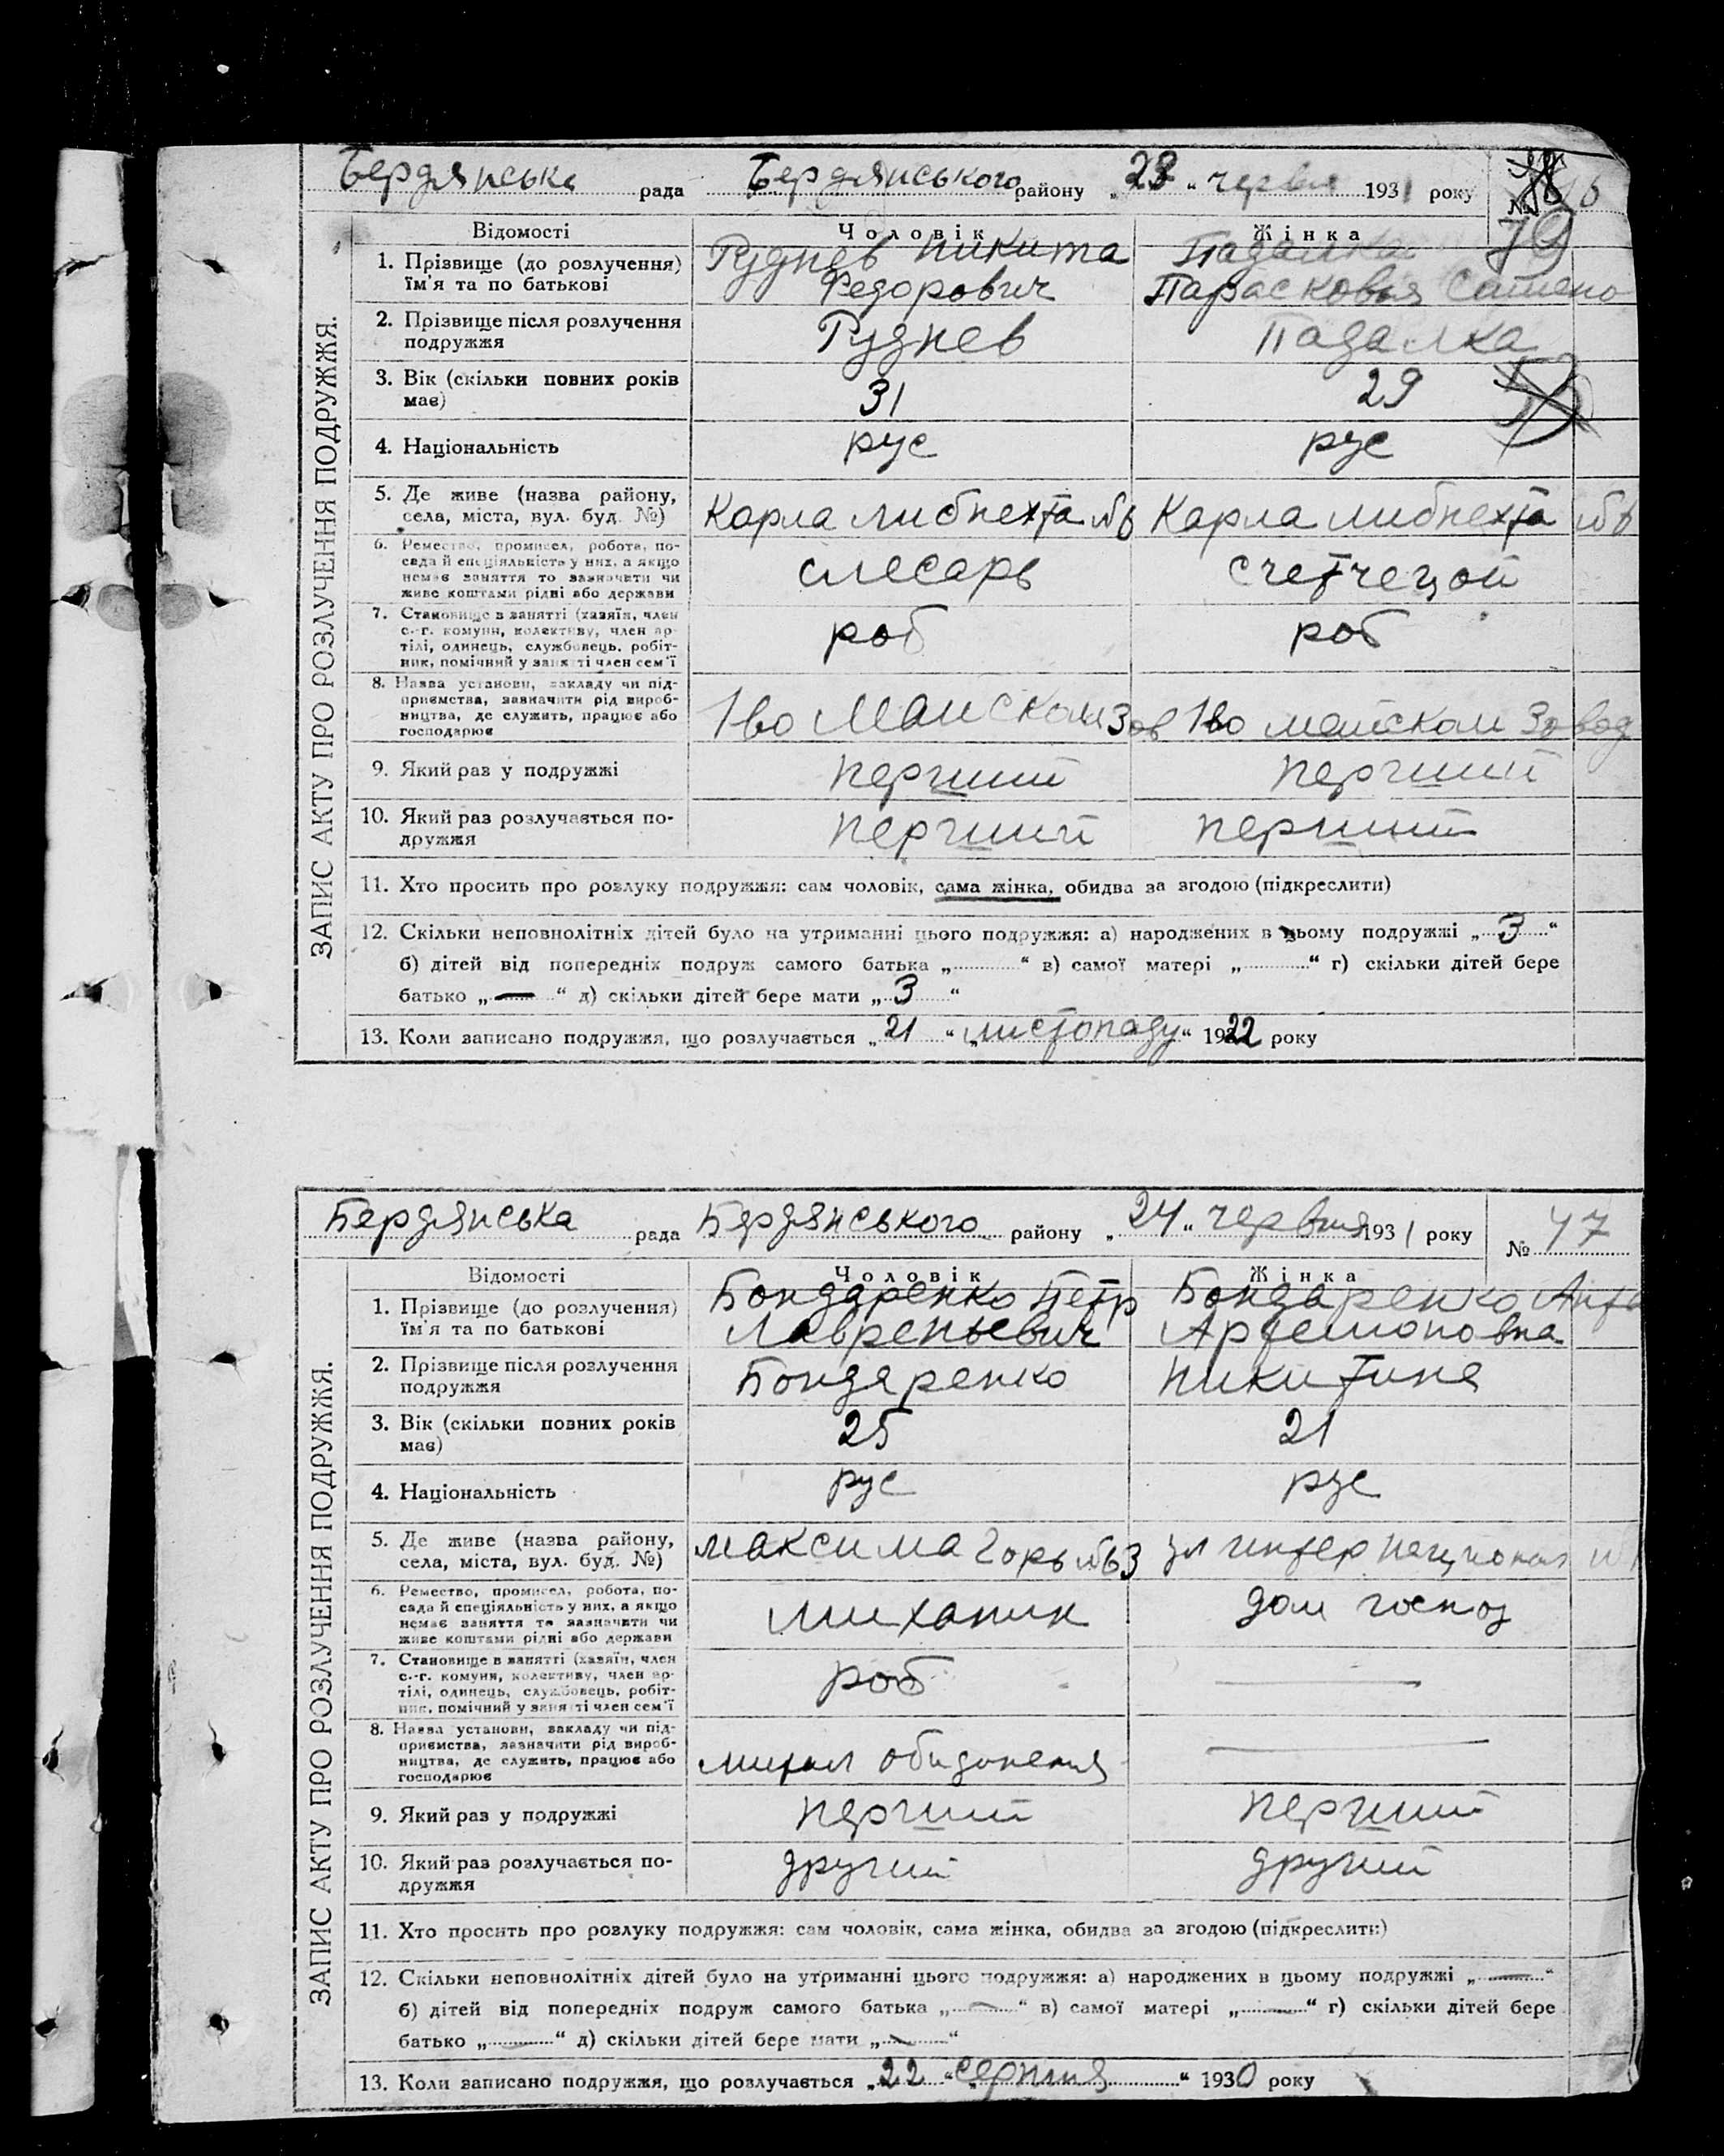 Бердянська рада Бердянського району „23“ червня 1931 року
№
Відомості Чоловік Жінка
1. Прізвище (до розлучення) їм'я та по батькові
Руднев Никита Падалка
Федорович Парасковья Семено
2. Прізвище після розлучення подружжя
Руднев Падалка
3. Вік (скільки повних років має)
31 29
4. Національність рус рус
5. Де живе (назва району, села, міста, вул. буд. №)
Карла либнехта №6 Карла либнехта №6
6. Ремество, промисел, робота, посада й спеціяльність у них, а якщо немає заняття то зазначити чи живе коштами рідні або держави
слесарь счетчецой
7. Становище в занятті (хазяїн, член с.-г. комуни, колективу, член артілі, одинець, службовець, робітник, помічний у занятті член сем'ї
роб роб
8. Назва установи, закладу чи підприємства, зазначити рід виробництва, де служить, працює або господарює
1во Майском Зов 1во майском Завод
9. Який раз у подружжі перший перший
10. Який раз розлучається подружжя
перший перший
11. Хто просить про розлуку подружжя: сам чоловік, сама жінка, обидва за згодою (підкреслити)
12. Скільки неповнолітніх дітей було на утриманні цього подружжя: а) народжених в цьому подружжі „3“
б) дітей від попередніх подруж самого батька „ “ в) самої матері „ “ г) скільки дітей бере
батько „—“ д) скільки дітей бере мати „3“
13. Коли записано подружжя, що розлучається „21“ „листопаду“ 1922 року
ЗАПИС АКТУ ПРО РОЗЛУЧЕННЯ ПОДРУЖЖЯ.
Бердянська рада Бердянського району „24“ червня 1931 року
№ 47
Відомості Чоловік Жінка
1. Прізвище (до розлучення) їм'я та по батькові
Бондаренко Петр Бондаренко
Лавреньевич Артемоновна
2. Прізвище після розлучення подружжя
Бондаренко Никитина
3. Вік (скільки повних років має)
25 21
4. Національність рус рус
5. Де живе (назва району, села, міста, вул. буд. №)
Максима Горь №63 ул интернационал
6. Ремество, промисел, робота, посада й спеціяльність у них, а якщо немає заняття то зазначити чи живе коштами рідні або держави
миханик дом госпоз
7. Становище в занятті (хазяїн, член с.-г. комуни, колективу, член артілі, одинець, службовець, робітник, помічний у занятті член сем'ї
роб —
8. Назва установи, закладу чи підприємства, зазначити рід виробництва, де служить, працює або господарює
—
9. Який раз у подружжі перший перший
10. Який раз розлучається подружжя
другий другий
11. Хто просить про розлуку подружжя: сам чоловік, сама жінка, обидва за згодою (підкреслити)
12. Скільки неповнолітніх дітей було на утриманні цього подружжя: а) народжених в цьому подружжі „—“
б) дітей від попередніх подруж самого батька „—“ в) самої матері „—“ г) скільки дітей бере
батько „—“ д) скільки дітей бере мати „—“
13. Коли записано подружжя, що розлучається „22“ „серпня“ 1930 року
ЗАПИС АКТУ ПРО РОЗЛУЧЕННЯ ПОДРУЖЖЯ.